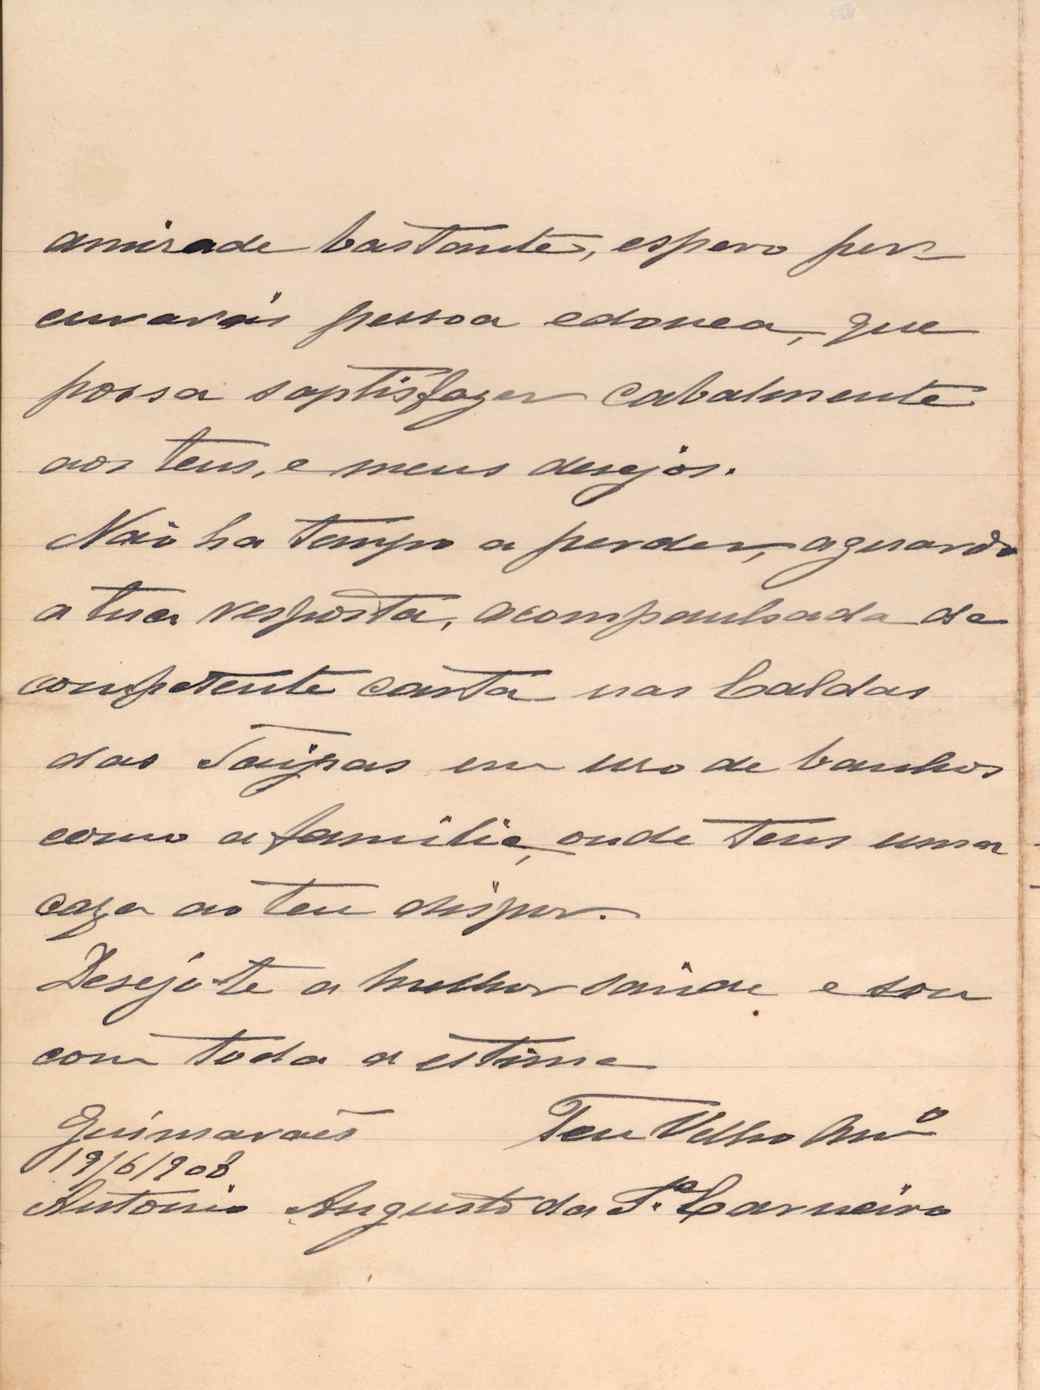 amizade bastante, espero per-
curarás pessoa edonea, que
possa saptisfazer cabalmente
aos teus, e meus desejos.
Não ha tempo a perder, aguardo
a tua resposta, acompanhada de
competente carta nas Caldas
das Taipas em uso de banhos
como a familia, onde tens uma
caza ao teu dispor.
Desejo-te a melhor saúde e sou
com toda a estima
Guimarães Teu Velho Amº
19/6/908
Antonio Augusto da Sª Carneiro